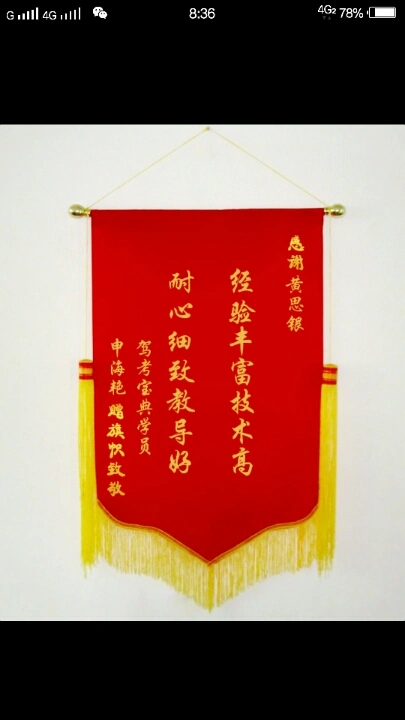 G 4G 8:36 4G2 78%
感谢黄思银
经验丰富技术高
耐心细致教导好
驾考宝典学员
申海艳 赠旗帜致敬